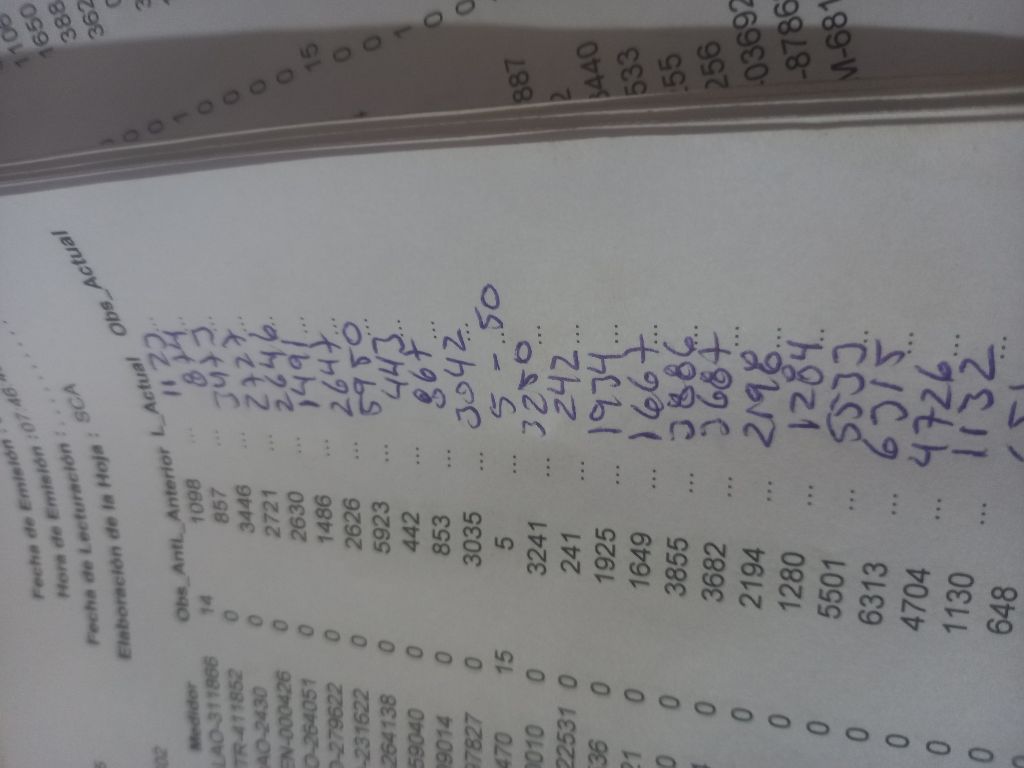 Fecha de Emisión :07:46
Hora de Emisión :
Fecha de Lecturación : SCA
Elaboración de la Hoja :
Medidor Obs_Ant L_Anterior L_Actual Obs_Actual
LAO-311866 14 1098 ... 1123 ...
TR-411852 0 857 ... 874 ...
AO-2430 0 3446 ... 3473 ...
EN-000426 0 2721 ... 2727 ...
O-264051 0 2630 ... 2646 ...
O-279622 0 1486 ... 1491 ...
-231622 0 2626 ... 2647 ...
264138 0 5923 ... 5950 ...
590040 0 442 ... 443 ...
99014 0 853 ... 867 ...
97827 0 3035 ... 3042 ...
470 15 5 ... 5 - 50
0010 0 3241 ... 3250 ...
22531 0 241 ... 242 ...
36 0 1925 ... 1934 ...
21 0 1649 ... 1667 ...
0 0 3855 ... 3886 ...
0 3682 ... 3687 ...
0 2194 ... 2198 ...
0 1280 ... 1284 ...
0 5501 ... 5533 ...
0 6313 ... 6315 ...
0 4704 ... 4726 ...
0 1130 ... 1132 ...
648
887
2
3440
533
.55
256
.03692
-8786
M-681